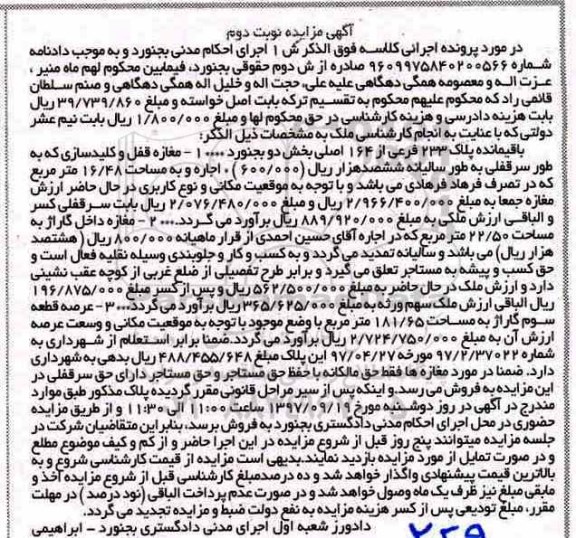 آگهی مزایده نوبت دوم
در مورد پرونده اجرائی کلاسه فوق الذکر ش ۱ اجرای احکام مدنی بجنورد و به موجب دادنامه
شماره ۹۶۰۹۹۷۵۸۴۰۲۰۰۵۶۶ صادره از ش دوم حقوقی بجنورد، فیمابین محکوم لهم ماه منیر ،
عزت اله و معصومه همگی دهگاهی علیه علی، حجت اله و خلیل اله همگی دهگاهی و صنم سلطان
قائمی راد که محکوم علیهم محکوم به تقسیم ترکه بابت اصل خواسته و مبلغ ۳۹/۷۳۹/۸۶۰ ریال
بابت هزینه دادرسی و هزینه کارشناسی در حق محکوم لها و مبلغ ۱/۸۰۰/۰۰۰ ریال بابت نیم عشر
دولتی که با عنایت به انجام کارشناسی ملک به مشخصات ذیل الذکر:
باقیمانده پلاک ۲۳۳ فرعی از ۱۶۴ اصلی بخش دو بجنورد .... ۱ - مغازه قفل و کلیدسازی که به
طور سرقفلی به طور سالیانه ششصدهزار ریال (۶۰۰/۰۰۰) ، اجاره و به مساحت ۱۶/۴۸ متر مربع
که در تصرف فرهاد فرهادی می باشد و با توجه به موقعیت مکانی و نوع کاربری در حال حاضر ارزش
مغازه جمعا به مبلغ ۲/۹۶۶/۴۰۰/۰۰۰ ریال و مبلغ ۲/۰۷۶/۴۸۰/۰۰۰ ریال بابت سرقفلی کسر
و الباقی ارزش ملکی به مبلغ ۸۸۹/۹۲۰/۰۰۰ ریال برآورد می گردد.... ۲ - مغازه داخل گاراژ به
مساحت ۲۲/۵۰ متر مربع که در اجاره آقای حسین احمدی از قرار ماهیانه ۸۰۰/۰۰۰ ریال (هشتصد
هزار ریال) می باشد و سالیانه تمدید می گردد و به کسب و کار و جلوبندی وسیله نقلیه فعال است و
حق کسب و پیشه به مستاجر تعلق می گیرد و برابر طرح تفصیلی از ضلع غربی از کوچه عقب نشینی
دارد و ارزش ملک در حال حاضر به مبلغ ۵۶۲/۵۰۰/۰۰۰ ریال و پس از کسر مبلغ ۱۹۶/۸۷۵/۰۰۰
ریال الباقی ارزش ملک سهم ورثه به مبلغ ۳۶۵/۶۲۵/۰۰۰ ریال برآورد می گردد....۳ - عرصه قطعه
سوم گاراژ به مساحت ۱۸۱/۶۵ متر مربع با وضع موجود با توجه به موقعیت مکانی و وسعت عرصه
ارزش آن به مبلغ ۲/۷۲۴/۷۵۰/۰۰۰ ریال برآورد می گردد.ضمنا برابر استعلام از شهرداری به
شماره ۹۷/۲/۳۷۰۲۲ مورخه ۹۷/۰۴/۲۷ این پلاک مبلغ ۴۸۸/۴۵۵/۶۴۸ ریال بدهی به شهرداری
دارد. ضمنا در مورد مغازه ها فقط حق مالکانه با حفظ حق مستأجر و حق مستأجر دارای حق سرقفلی در
این مزایده به فروش می رسد.و اینکه پس از سیر مراحل قانونی مقرر گردیده پلاک مذکور طبق موارد
مندرج در آگهی در روز دوشنبه مورخ ۱۳۹۷/۰۹/۱۹ ساعت ۱۱:۰۰ الی ۱۱:۳۰ و از طریق مزایده
حضوری در محل اجرای احکام مدنی دادگستری بجنورد به فروش برسد، بنابراین متقاضیان شرکت در
جلسه مزایده میتوانند پنج روز قبل از شروع مزایده در این اجرا حاضر و از کم و کیف موضوع مطلع
و در صورت تمایل از مورد مزایده بازدید نمایند.بدیهی است مزایده از قیمت کارشناسی شروع و به
بالاترین قیمت پیشنهادی واگذار خواهد شد و ده درصدمبلغ کارشناسی قبل از شروع مزایده أخذ و
مابقی مبلغ نیز ظرف یک ماه وصول خواهد شد و در صورت عدم پرداخت الباقی (نود درصد ) در مهلت
مقرر، مبلغ تودیعی پس از کسر هزینه مزایده به نفع دولت ضبط و مزایده تجدید می گردد.
دادورز شعبه اول اجرای مدنی دادگستری بجنورد - ابراهیمی
۲۵۹